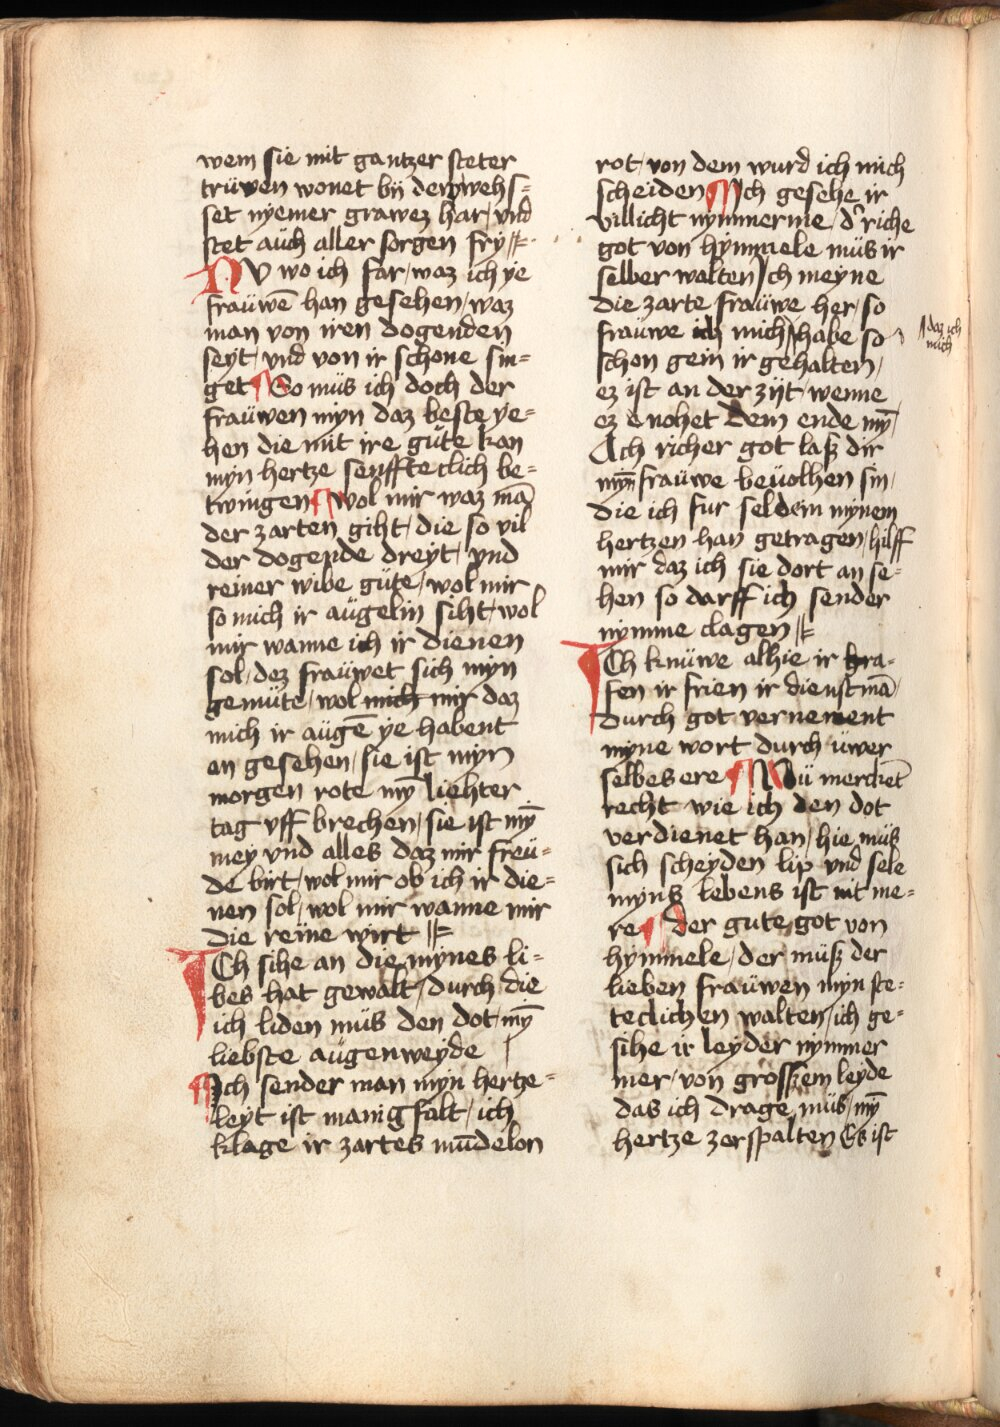 wem sie mit gantzer steter
trüwen wonet bÿ der wehs=
set nyemer grawez har / vnd
stet auch aller sorgen frÿ
NV wo ich far / waz ich ye
frauwē han gesehen / waz
man von iren dogenden
seyt / vnd von ir schone sin=
get So müs ich doch der
frauwen myn daz beste ye=
hen die mit ire güte kan
myn hertze senffteclich be=
twingen wol mir waz mā
der zarten giht / die so vil
der dogende dreyt / vnd
reiner wibe güte / wol mir
so mich ir augelin siht / wol
mir wanne ich ir dienen
sol / dez frauwet sich myn
gemüte / wol mich mir daz
mich ir augē ye habent
an gesehen / sie ist myn
morgen rote mȳ liehter
tag vff brechen / sie ist mȳ
mey vnd alles daz mir freü=
de birt / wol mir ob ich ir die=
nen sol / wol mir wanne mir
die reine wirt
ICh sihe an die mynes li=
bes hat gewalt / durch die
ich liden müs den dot mȳ
liebste augenweyde
Ich sender man myn hertze=
leyt ist manigfalt / ich
klage ir zartes mūdelon
rot / von dem wurd ich mich
scheiden Ich gesehe ir
villicht nymmerme / d' riche
got von hymmele müs ir
selber walten Ich meyne
die zarte frauwe her / so
frauwe ich mich / habe so
daz ich
mich
schon gein ir gehalten /
ez ist an der zÿt / wenne
ez nohet dem ende mȳ /
Ach richer got laß dir
myn frauwe beuolhen sin /
die ich fur seldem mynem
hertzen han getragen / hilff
mir daz ich sie dort an se=
hen so darff ich sender
nymme clagen
ICh knüwe alhie ir gra=
fen ir frien ir dienstmā
durch got vernement
myne wort durch üwer
selbes ere Nü merckēt
recht wie ich den dot
verdienet han / hie müs
sich scheyden lip vnd sele
myns lebens ist nit me=
re der gute got von
hymmele / der müß der
lieben frauwen myn ste=
teclichen walten / ich ge=
sihe ir leyder nymmer
mer / von grossem leyde
das ich drage müs / mȳ
hertze zerspalten Es ist